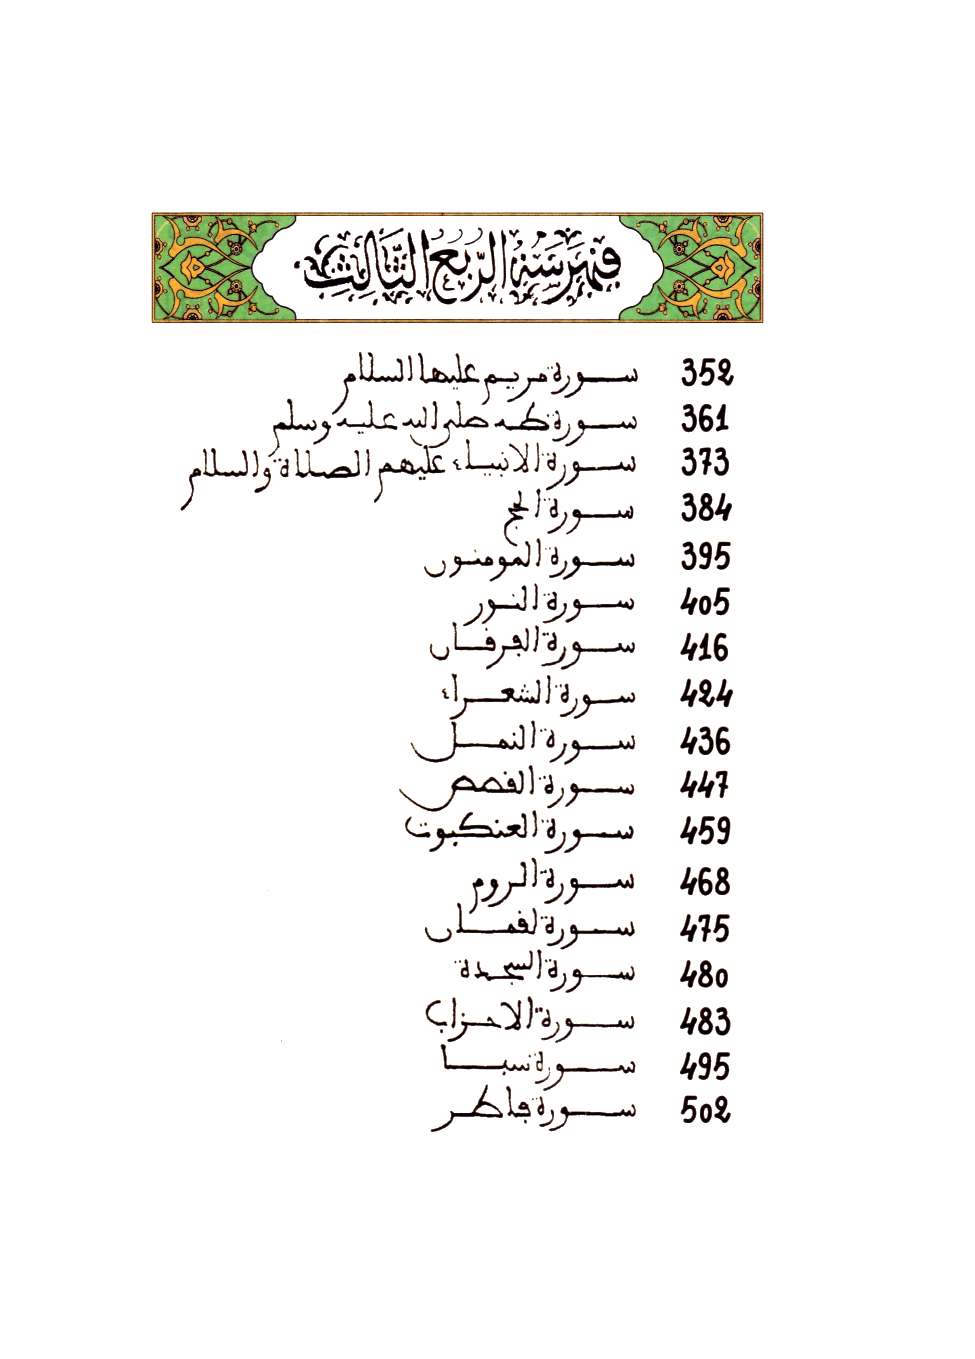 فِهْرَسَةُ الرُّبُعِ الثَّالِثِ
352 سورة مريم عليها السلام
361 سورة طه صلى الله عليه وسلم
373 سورة الانبياء عليهم الصلاة والسلام
384 سورة الحج
395 سورة المومنون
405 سورة النور
416 سورة الفرقان
424 سورة الشعراء
436 سورة النمل
447 سورة القصص
459 سورة العنكبوت
468 سورة الروم
475 سورة لقمان
480 سورة السجدة
483 سورة الاحزاب
495 سورة سبا
502 سورة فاطر